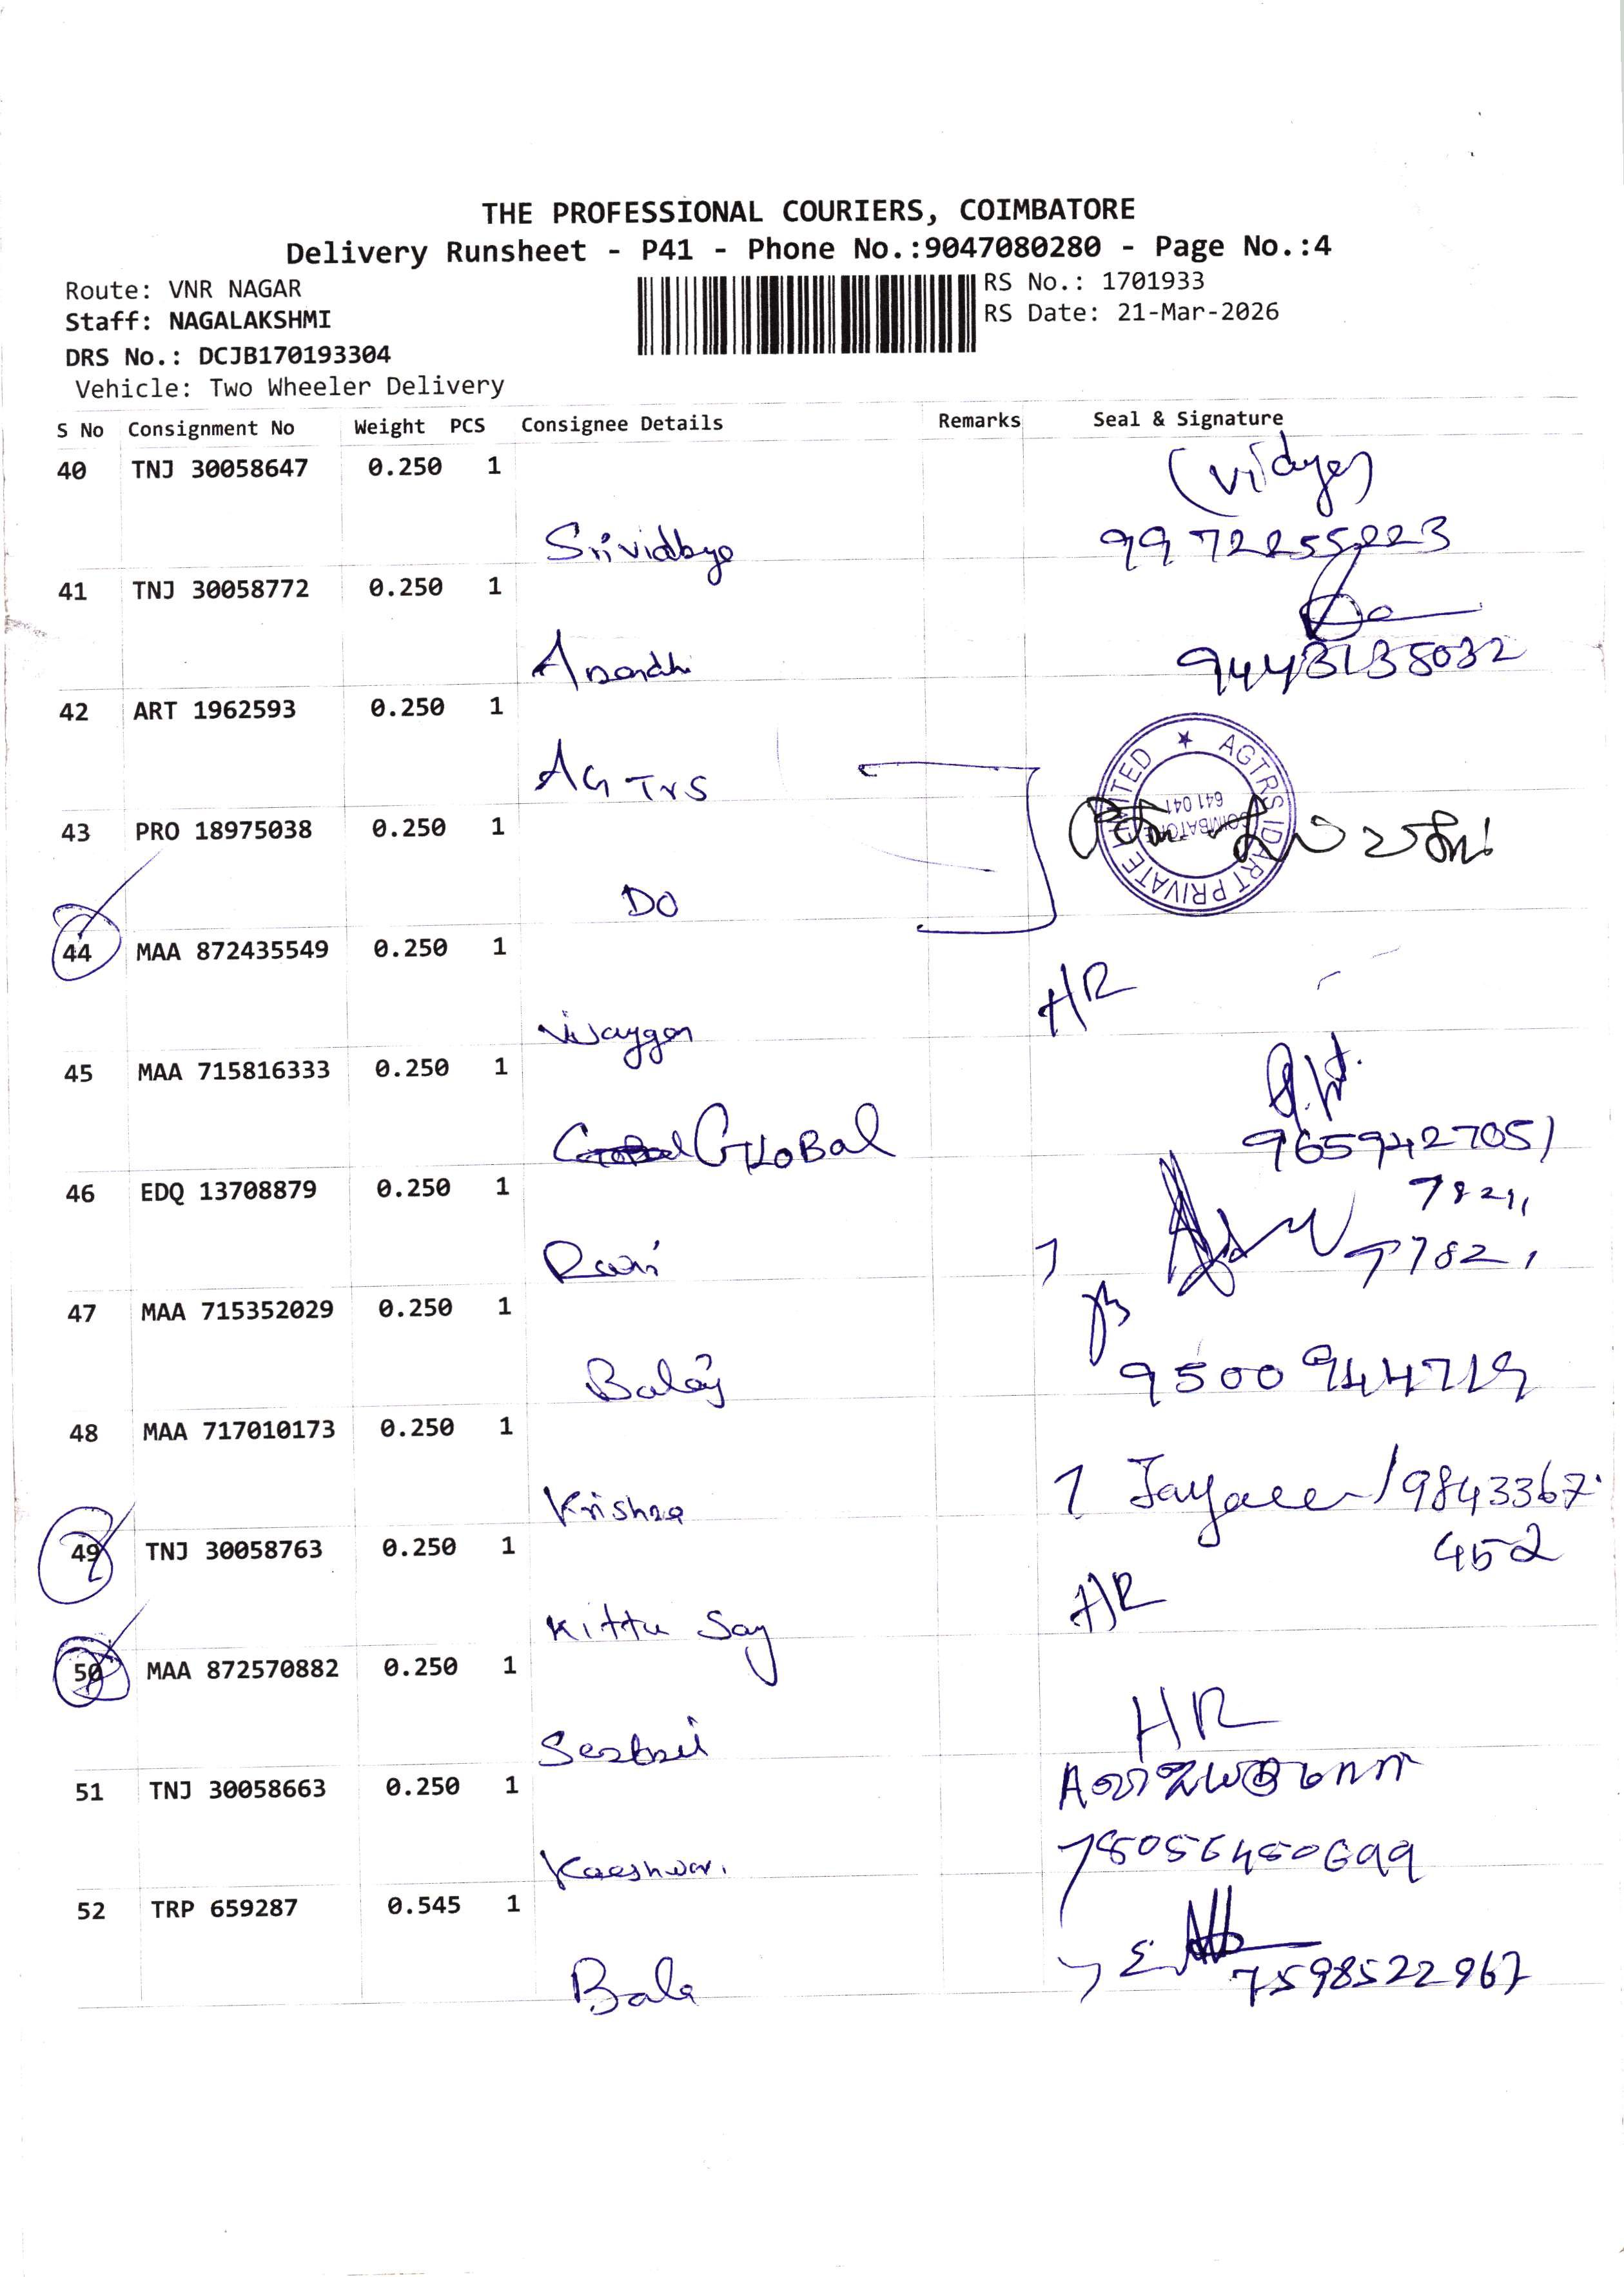 THE PROFESSIONAL COURIERS, COIMBATORE
Delivery Runsheet - P41 - Phone No.:9047080280 - Page No.:4
Route: VNR NAGAR
RS No.: 1701933
Staff: NAGALAKSHMI
RS Date: 21-Mar-2026
DRS No.: DCJB170193304
Vehicle: Two Wheeler Delivery
S No Consignment No Weight PCS Consignee Details Remarks Seal & Signature
40 TNJ 30058647 0.250 1
(Vidya)
Srividhya
41 TNJ 30058772 0.250 1
Anandhi
9443135032
42 ART 1962593 0.250 1
AGTrS
AGTRS IDART PRIVATE LIMITED ★
COIMBATORE
641 041
43 PRO 18975038 0.250 1
DO
44 MAA 872435549 0.250 1
HR
45 MAA 715816333 0.250 1
GLOBAL
9659427051
46 EDQ 13708879 0.250 1
7821
Ravi
77821
47 MAA 715352029 0.250 1
Balaj
9500944719
48 MAA 717010173 0.250 1
Krishna
9843367
452
49 TNJ 30058763 0.250 1
HR
Kittu Say
50 MAA 872570882 0.250 1
HR
51 TNJ 30058663 0.250 1
52 TRP 659287 0.545 1
Bala
7598522967